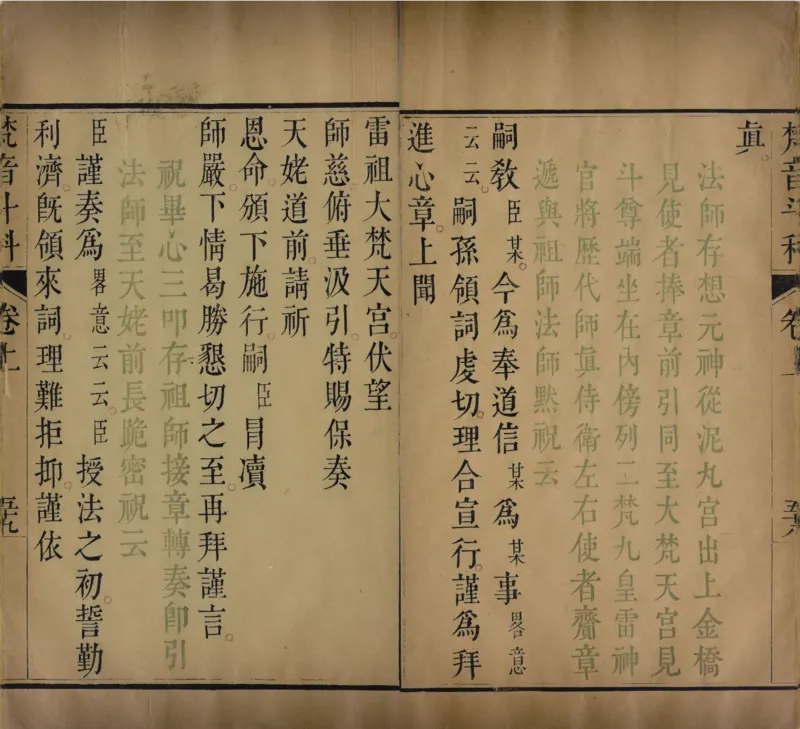 梵音斗科 卷上
眞。
法師存想元神從泥丸宮出上金橋
見使者捧章前引同至大梵天宮見
斗尊端坐在內傍列二梵九皇雷神
官將歷代師眞侍衛左右使者齎章
遞與祖師法師默祝云
嗣敎臣某。今爲奉道信某爲某事畧意
云云。嗣孫領詞虔切。理合宣行。謹爲拜
進心章。上聞
雷祖大梵天宮。伏望
師慈俯垂汲引。特賜保奏
天姥道前。請祈
恩命。頒下施行。嗣臣冐瀆
師嚴。下情曷勝懇切之至。再拜謹言。
祝畢心三叩存祖師接章轉奏卽引
法師至天姥前長跪密祝云
臣謹奏爲畧意云云。臣授法之初。誓勤
利濟。旣領來詞。理難拒抑。謹依
梵音斗科 卷上 五九